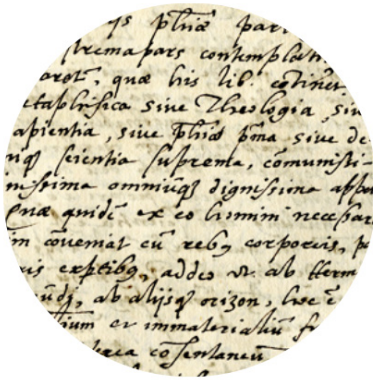 phiae par
supremapars contemplati
quae his lib. cotinet
etaphisica siue Theologia, siu
apientia, siue phiae pma siue de
scientia suprema, comunissi-
nissima omniuq dignissima appa
quide ex eo homini necessar
m coueniat cu rebq corporeis, p
is expertibq, addeo vt ab Herm
undi, ab alijsq orizon, hoc e
tium et immaterialiu fr
rea cosentaneu